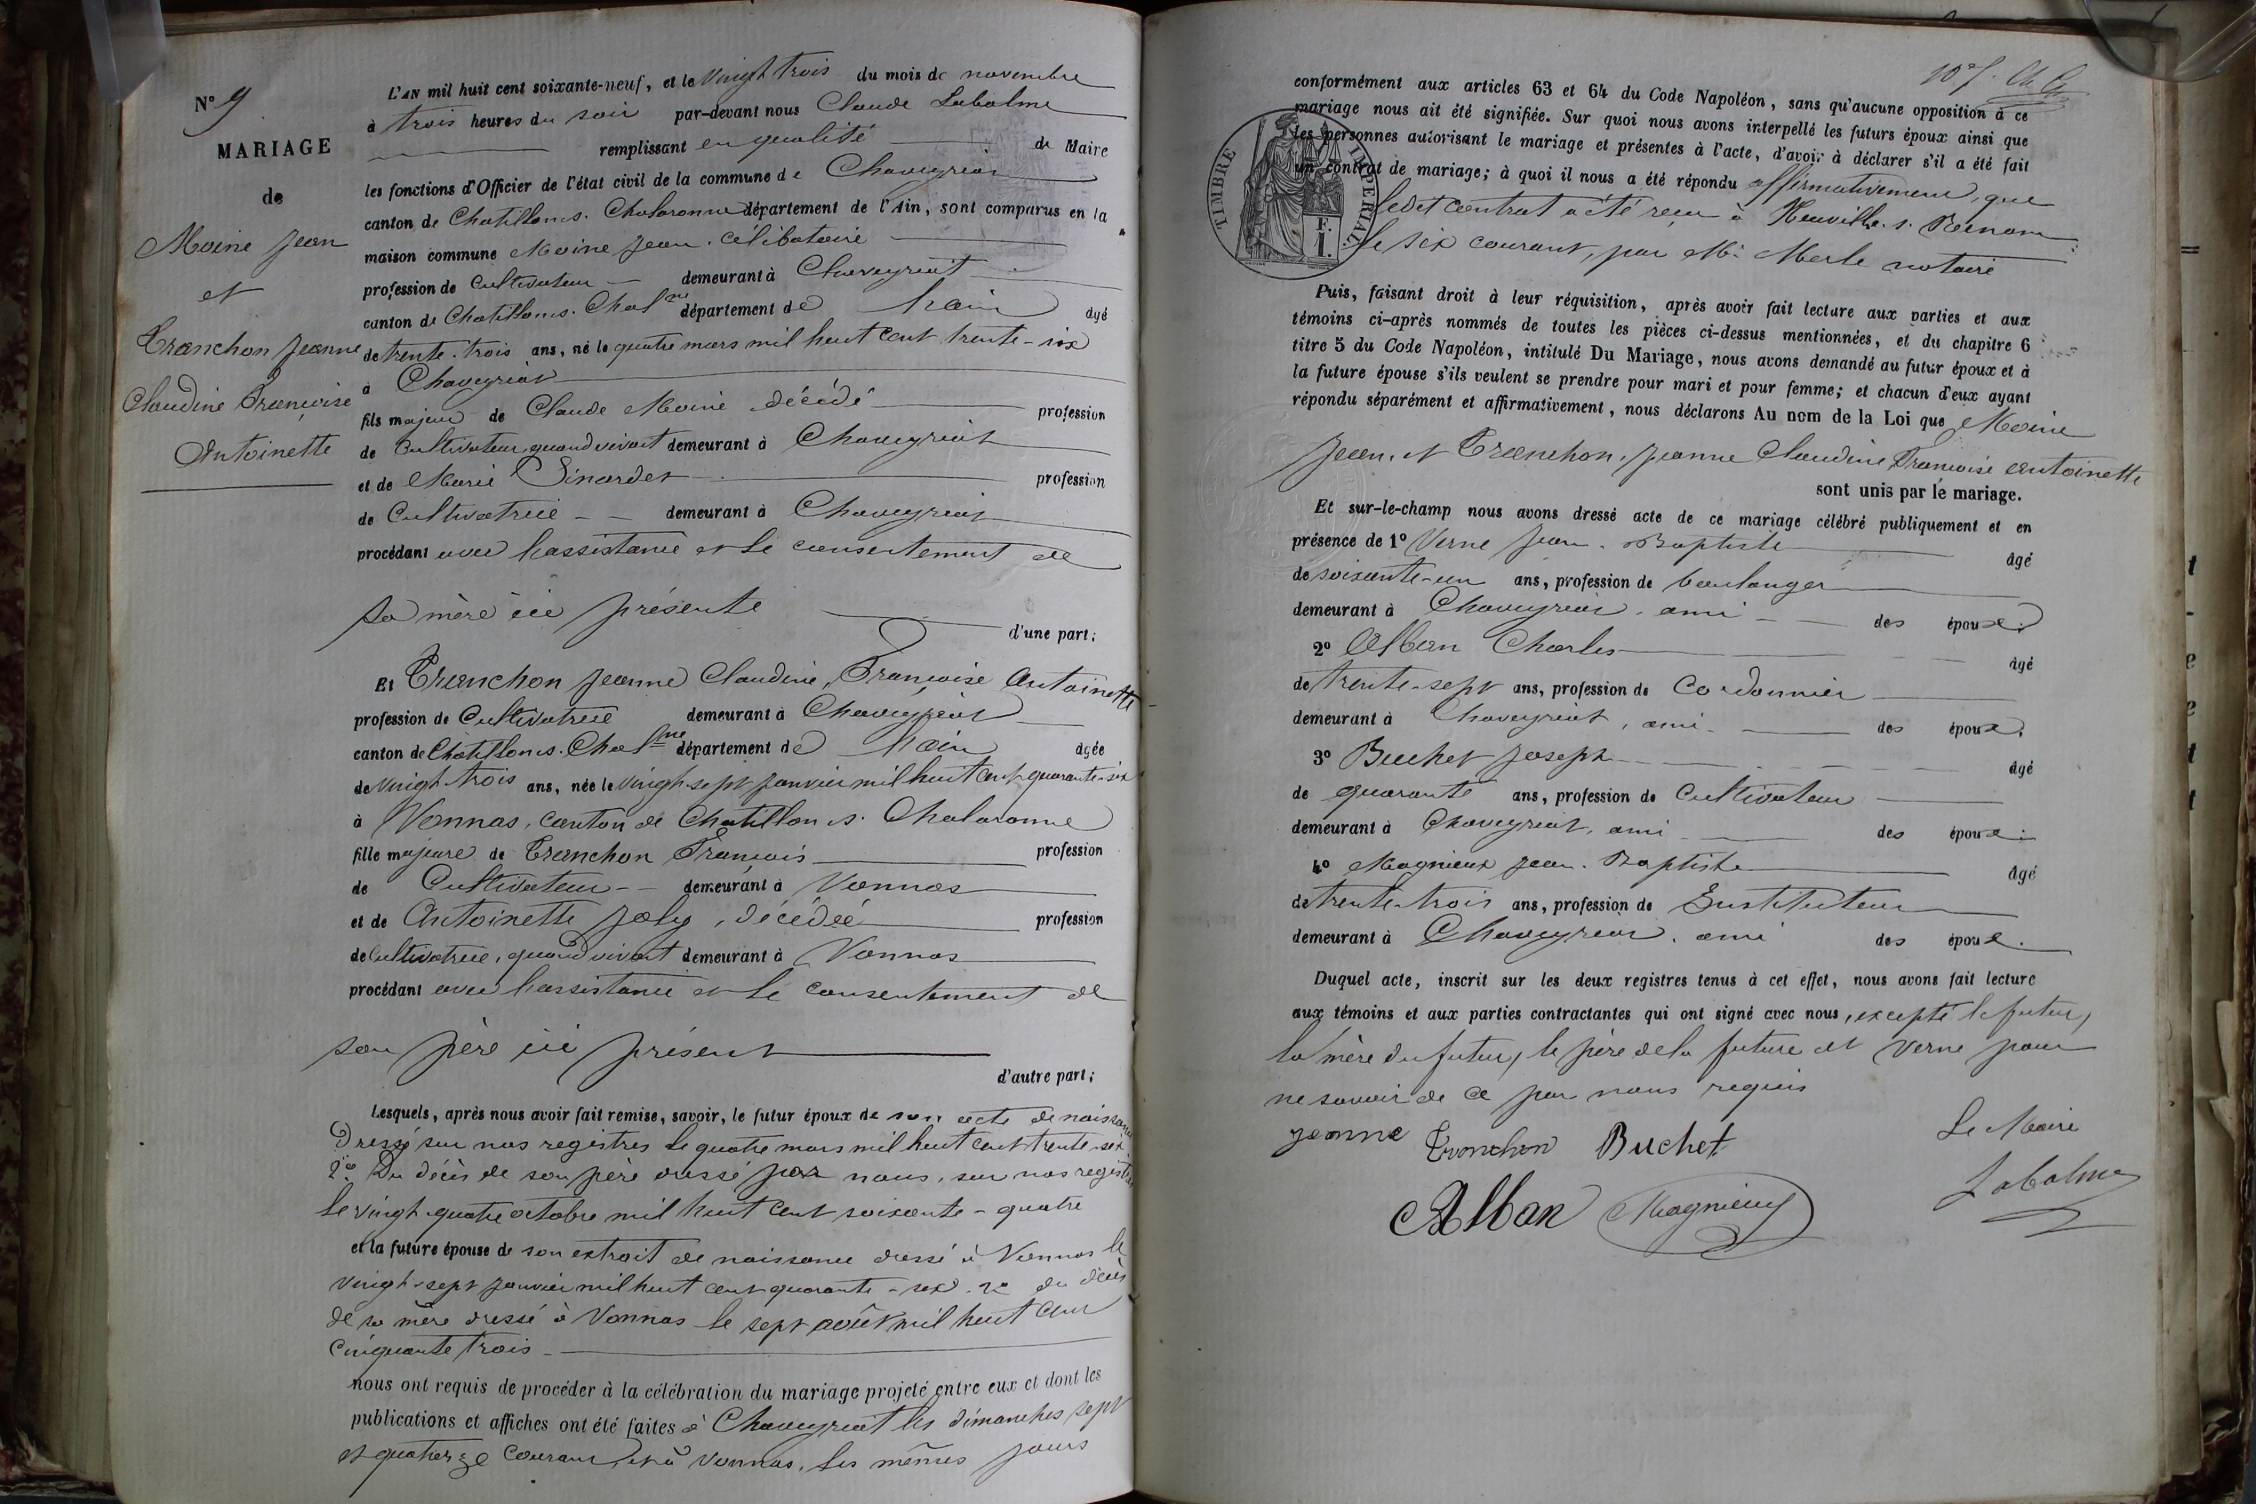 N° 9
MARIAGE
de
Moine Jean
et
Tranchon Jeanne
Claudine Françoise
Antoinette
L'AN mil huit cent soixante-neuf, et le Vingt trois du mois de novembre
à trois heures du soir par-devant nous Claude Labalme
remplissant en qualité de Maire
les fonctions d'Officier de l'état civil de la commune de Chaveyriat
canton de Chatillon s. Chalaronne département de l'Ain, sont comparus en la
maison commune Moine Jean. célibataire
profession de Cultivateur demeurant à Chaveyriat
canton de Chatillon s. Chalne département de l'ain âgé
de trente-trois ans, né le quatre mars mil huit cent trente-six
à Chaveyriat
fils majeur de Claude Moine décédé profession
de Cultivateur, quand vivait demeurant à Chaveyriat
et de Marie Pinardet profession
de Cultivatrice demeurant à Chaveyriat
procédant avec l'assistance et le consentement de
sa mère ici présente
d'une part;
Et Tranchon Jeanne Claudine, Françoise Antoinette
profession de Cultivatrice demeurant à Chaveyriat
canton de Châtillon s. Chalne département de l'ain âgée
de vingt-trois ans, née le vingt-sept janvier mil huit cent quarante-six
à Vonnas, canton de Chatillon s. Chalaronne
fille majeure de Tranchon François profession
de Cultivateur demeurant à Vonnas
et de Antoinette Joly, décédée profession
de Cultivatrice, quand vivait demeurant à Vonnas
procédant avec l'assistance et le consentement de
son père ici présent
d'autre part;
Lesquels, après nous avoir fait remise, savoir, le futur époux de son acte de naissance
Dressé sur nos registres le quatre mars mil huit cent trente-six
2° Du décès de son père dressé par nous, sur nos registres
le vingt-quatre octobre mil huit cent soixante-quatre
et la future épouse de son extrait de naissance dressé à Vonnas le
vingt-sept janvier mil huit cent quarante-six. 2° du décès
de sa mère dressé à Vonnas le sept août mil huit cent
cinquante trois
nous ont requis de procéder à la célébration du mariage projeté entre eux et dont les
publications et affiches ont été faites à Chaveyriat les dimanches sept
et quatorze courant, et à Vonnas, les mêmes jours
conformément aux articles 63 et 64 du Code Napoléon, sans qu'aucune opposition à ce
mariage nous ait été signifiée. Sur quoi nous avons interpellé les futurs époux ainsi que
les personnes autorisant le mariage et présentes à l'acte, d'avoir à déclarer s'il a été fait
un contrat de mariage; à quoi il nous a été répondu affirmativement, que
ledit contrat a été reçu à Neuville s. Renom
le six courant, par Me Merle notaire
TIMBRE IMPERIAL
F.
1.
Puis, faisant droit à leur réquisition, après avoir fait lecture aux parties et aux
témoins ci-après nommés de toutes les pièces ci-dessus mentionnées, et du chapitre 6
titre 5 du Code Napoléon, intitulé Du Mariage, nous avons demandé au futur époux et à
la future épouse s'ils veulent se prendre pour mari et pour femme; et chacun d'eux ayant
répondu séparément et affirmativement, nous déclarons Au nom de la Loi que Moine
Jean. et Tranchon. Jeanne Claudine Françoise antoinette
sont unis par le mariage.
Et sur-le-champ nous avons dressé acte de ce mariage célébré publiquement et en
présence de 1° Verne Jean-Baptiste âgé
de soixante-un ans, profession de boulanger
demeurant à Chaveyriat. ami des époux.
2° Alban Charles âgé
de trente-sept ans, profession de Cordonnier
demeurant à Chaveyriat, ami des époux.
3° Buchet Joseph âgé
de quarante ans, profession de Cultivateur
demeurant à Chaveyriat, ami des époux.
4° Magnieux Jean-Baptiste âgé
de trente-trois ans, profession de Instituteur
demeurant à Chaveyriat. ami des époux.
Duquel acte, inscrit sur les deux registres tenus à cet effet, nous avons fait lecture
aux témoins et aux parties contractantes qui ont signé avec nous, excepté le futur,
la mère du futur, le père de la future et Verne pour
ne savoir de ce par nous requis
jeanne Tronchon Buchet
Le Maire
Alban Magnieux
Labalme